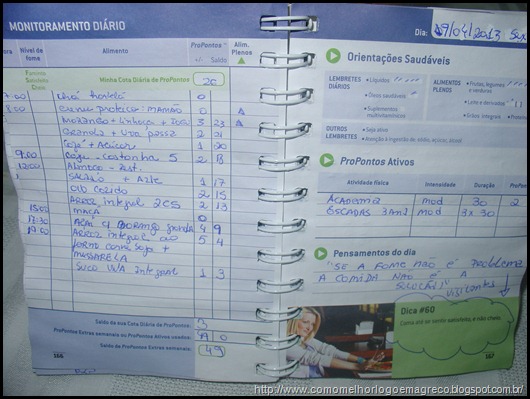 MONITORAMENTO DIÁRIO
ora
Nível de fome
Alimento
ProPontos
+/- Saldo
Alim. Plenos
Faminto
Satisfeito
Cheio
Minha Cota Diária de ProPontos 26
7:00 Chá hortelã 0
8:00 mamão 0
Morango + Linhaça + 3 23
Granola + Uva passa 2 21
Soja + Acúcar 1 20
9:00 Caju - castanha 5 2 18
12:00 Almoço - Rest.
SALADA + Azte 1 17
OVO COZIDO 2 15
ARROZ integral 2CS 2 13
15:00 MAÇA 0
17:30 AÇAI c/ MORANGO grande 4 9
19:00 ARROZ integral ao 5 4
FORNO com soja +
MUSSARELA
SUCO UVA Integral 1 3
Saldo da sua Cota Diária de ProPontos: 3
ProPontos Extras semanais ou ProPontos Ativos usados: 0
Saldo de ProPontos Extras semanais: 49
166
Dia: 19/04/2013 Sex
Orientações Saudáveis
LEMBRETES DIÁRIOS
• Líquidos
• Óleos saudáveis
• Suplementos multivitamínicos
ALIMENTOS PLENOS
• Frutas, legumes e verduras
• Leite e derivados
• Grãos integrais
• Proteín
OUTROS LEMBRETES
• Seja ativo
• Atenção à ingestão de: sódio, açúcar, álcool
ProPontos Ativos
Atividade física Intensidade Duração ProPon
ACADEMIA mod 30 2
ESCADAS 3 And mod 3x 30
Pensamentos do dia
"SE A FOME NÃO É PROBLEMA
A COMIDA NÃO É A
SOLUÇÃO!"
VISITANTES
Dica #60
Coma até se sentir satisfeito, e não cheio.
167
http://www.comomelhorlogoemagreco.blogspot.com.br/